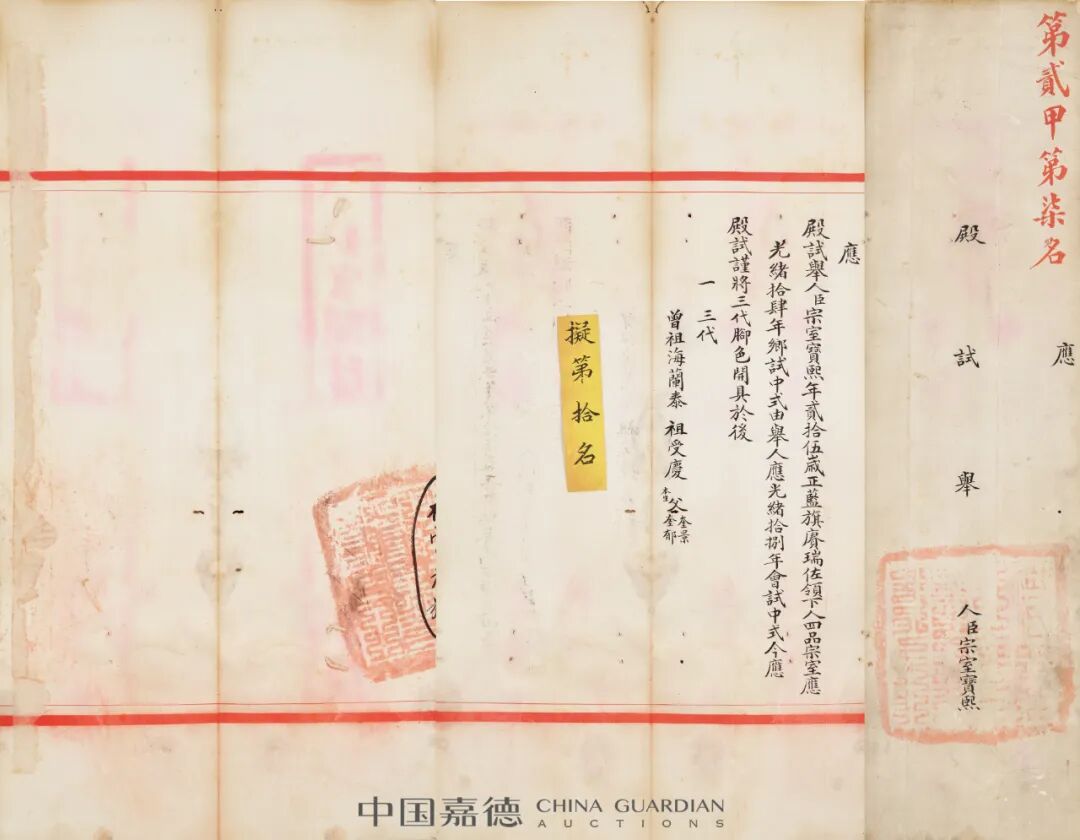 第貳甲第柒名
應
殿試舉人臣宗室寶熙
應
殿試舉人臣宗室寶熙年貳拾伍歲正藍旗賡瑞佐領下人四品宗室應
光緒拾肆年鄉試中式由舉人應光緒拾捌年會試中式今應
殿試謹將三代腳色開具於後
一三代
曾祖海蘭泰 祖受慶 父奎景
本生父奎郁
擬第拾名
中国嘉德 CHINA GUARDIAN
AUCTIONS